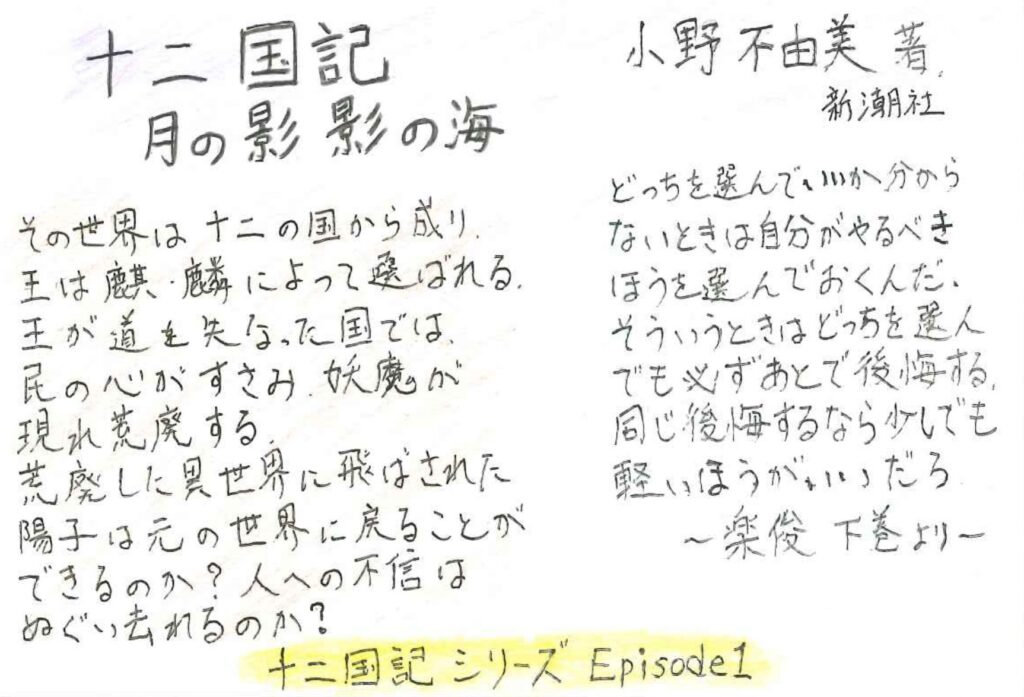 十二国記
月の影 影の海
小野 不由美 著.
新潮社
その世界は 十二の国から成り.
王は 麒・麟によって 選ばれる.
王が 道を 失なった 国では.
民の 心が すさみ 妖魔が
現れ 荒廃する.
荒廃した 異世界に 飛ばされた
陽子は 元の 世界に 戻ることが
できるのか? 人への 不信は
ぬぐい去れるのか?
どっちを選んでいいか分から
ないときは自分がやるべき
ほうを選んでおくんだ.
そういうときはどっちを選ん
でも必ずあとで後悔する.
同じ後悔するなら少しでも
軽いほうがいいだろ
～楽俊 下巻より～
十二国記 シリーズ Episode1